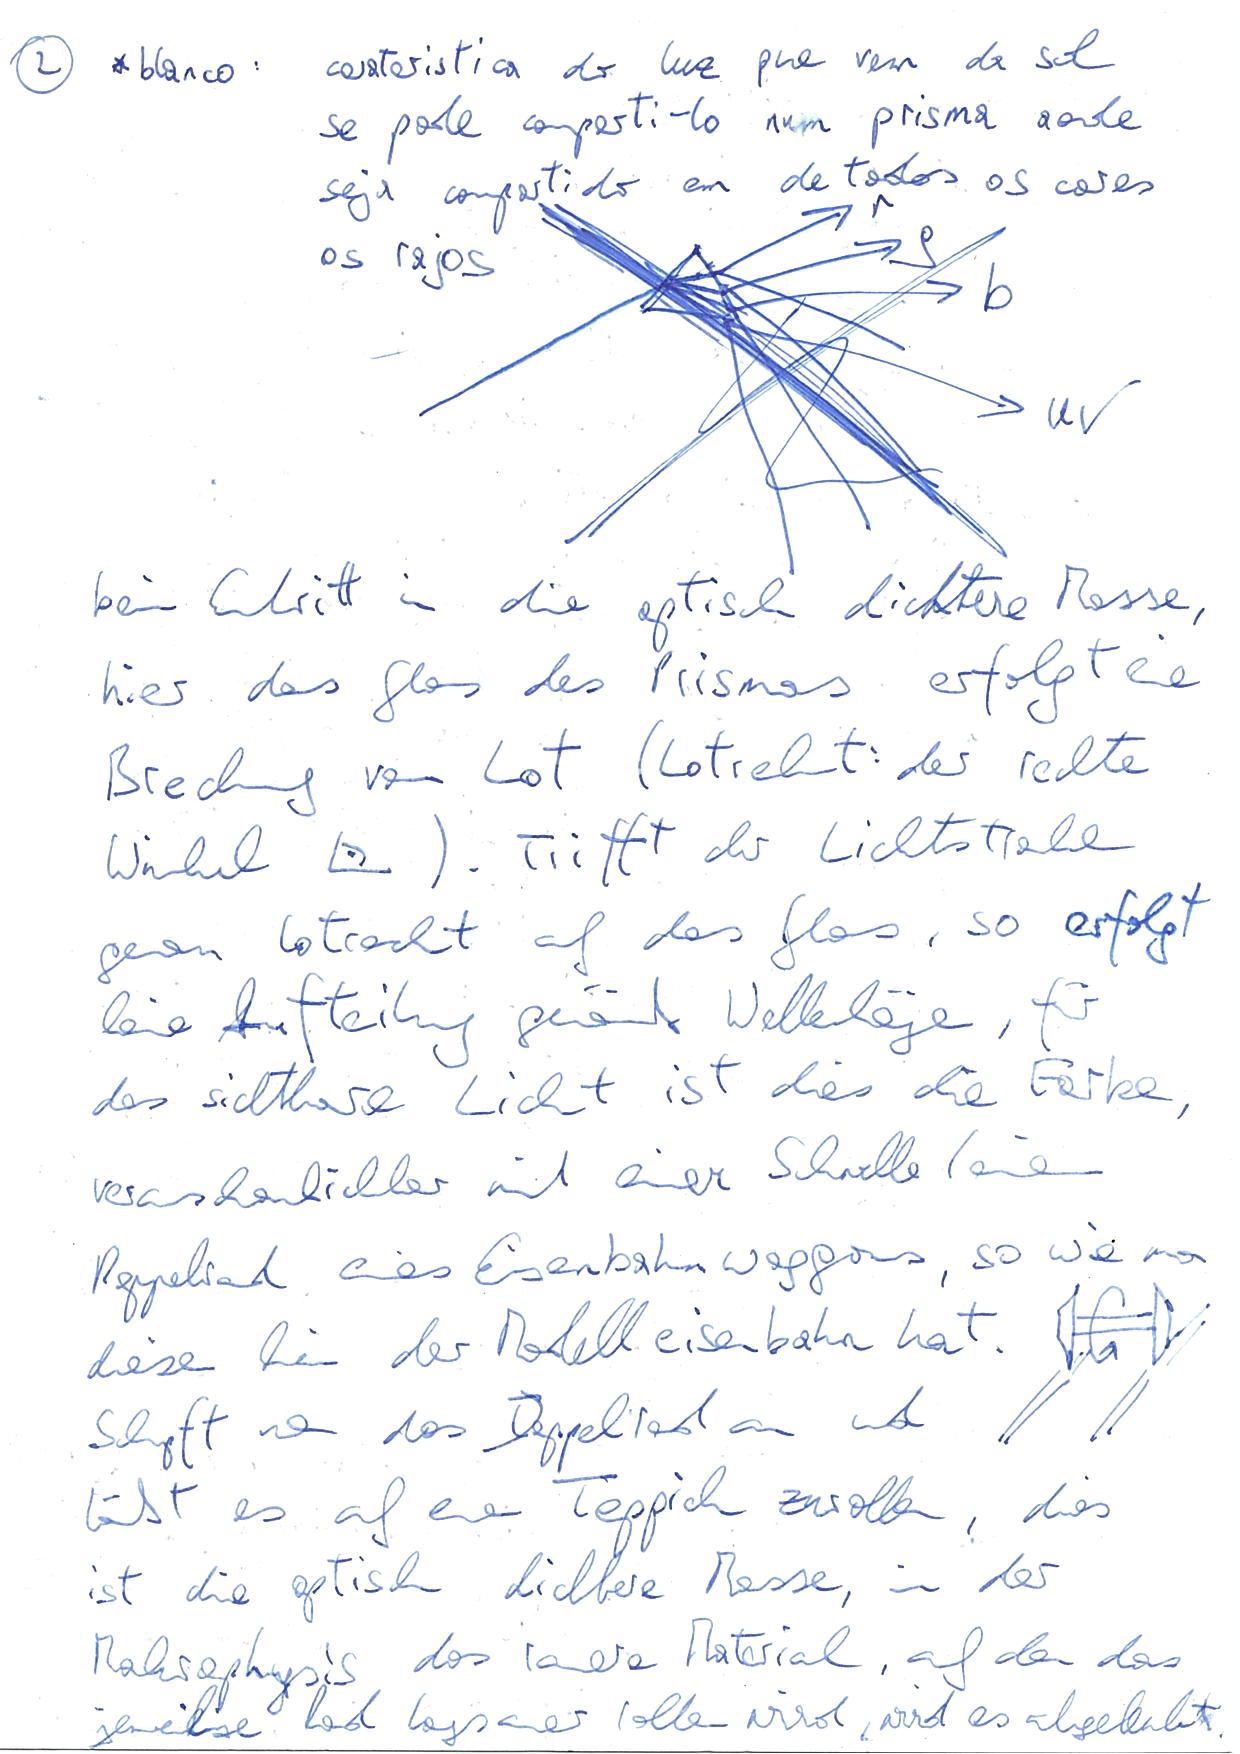 2 *blanco: carateristica do luz que vem da sol
se pode comparti-lo num prisma aonde
seja compartido em de todos os cores
os rajos
r
g
b
uv
beim Eintritt in die optisch dichtere Masse,
hier das Glas des Prismas erfolgt eine
Brechung vom Lot (Lotrecht: der rechte
Winkel ). Trifft der Lichtstrahl
genau lotrecht auf das Glas, so erfolgt
keine Aufteilung gemäß Wellenlänge, für
das sichtbare Licht ist dies die Farbe,
mit einer Schnelle / einem
Doppelrad eines Eisenbahnwaggons, so wie man
diese bei der Modelleisenbahn hat.
Schupft man das Doppelrad an und
läßt es auf einen Teppich zurollen, dies
ist die optisch dichtere Masse, in der
Makrophysis das Material, auf dem das
jeweilige Rad langsamer rollen wird, wird es abgelenkt.